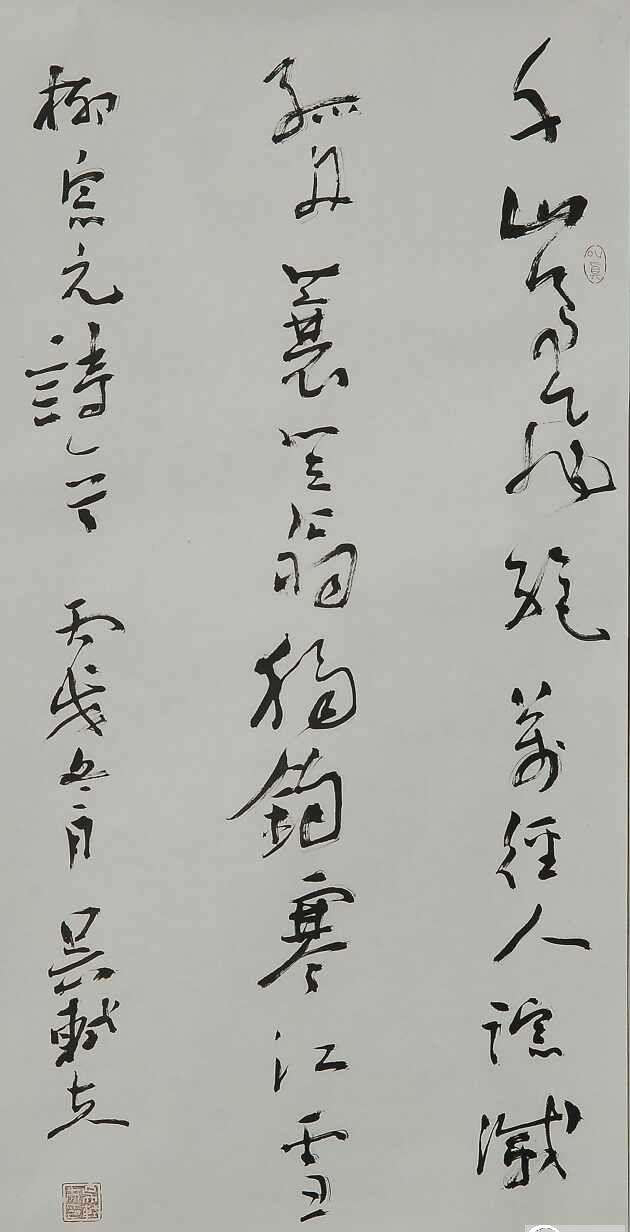 千山鳥飛絕萬徑人踪滅
孤舟蓑笠翁獨釣寒江雪
柳宗元詩一首 丙戌冬月 吳